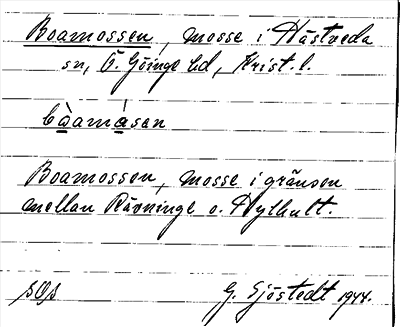 Boamossen, mosse i Hästveda
sn, Ö. Göinge hd, Krist. l.
bàamåsen
Boamossen, mosse i gränsen
mellan Rävninge o. Hylhult.
sOs G. Sjöstedt 1944.